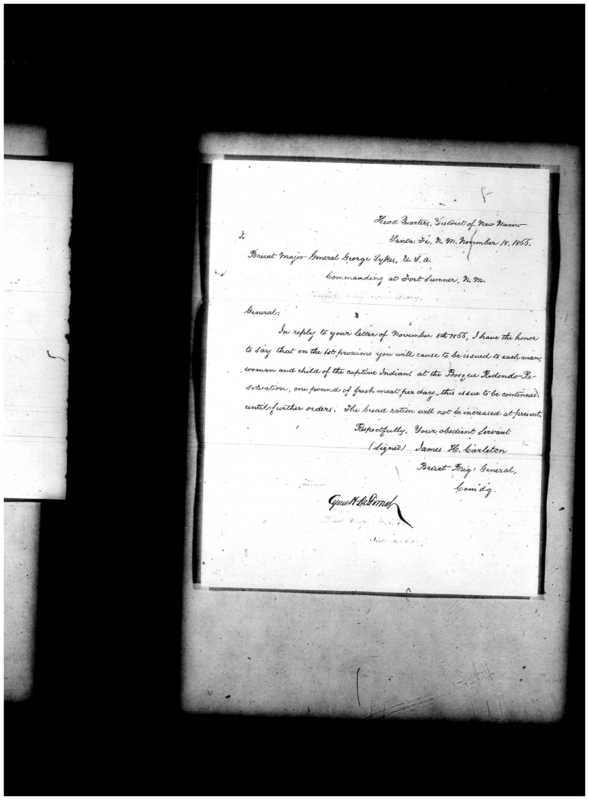 Head Quarters, District of New Mexico
Santa Fe, N. M. November 18, 1866.
To
Brevet Major General George Sykes, U. S. A.
Commanding at Fort Sumner, N. M.
General:
In reply to your letter of November 8th 1866, I have the honor
to say that on the 1st proximo you will cause to be issued to each man,
woman and child of the captive Indians at the Bosque Redondo Re-
servation, one pound of fresh meat per day, this issue to be continued
until further orders. The bread ration will not be increased at present.
Respectfully, Your obedient Servant
(Signed) James H. Carleton
Brevet Brig: General,
Com'dg